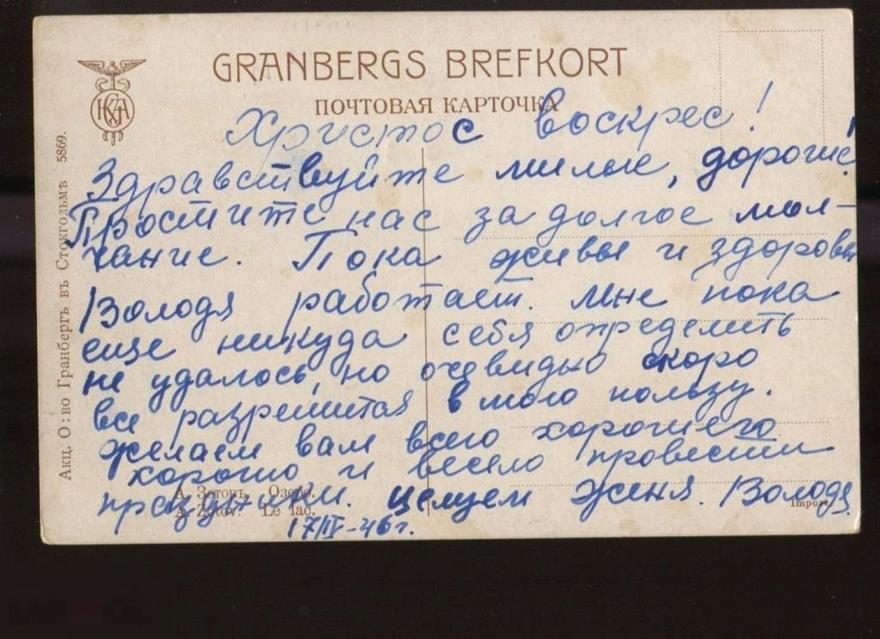 GRANBERGS BREFKORT
ПОЧТОВАЯ КАРТОЧКА
Христос воскрес!
Здравствуйте милые, дорогие!
Простите нас за долгое мол-
чание. Пока живы и здоровы
Володя работает. Мне пока
еще никуда себя определить
не удалось, но очевидно скоро
все разрешится в мою пользу.
Желаем вам всего хорошего
хорошо и весело провести
праздники. Целуем Женя. Володя.
17/IV-46г.
А. Зотовъ. Озеро.
A. Zotov. Le lac.
Import
Акц. О:во Гранбергъ въ Стокгольмѣ 5869.